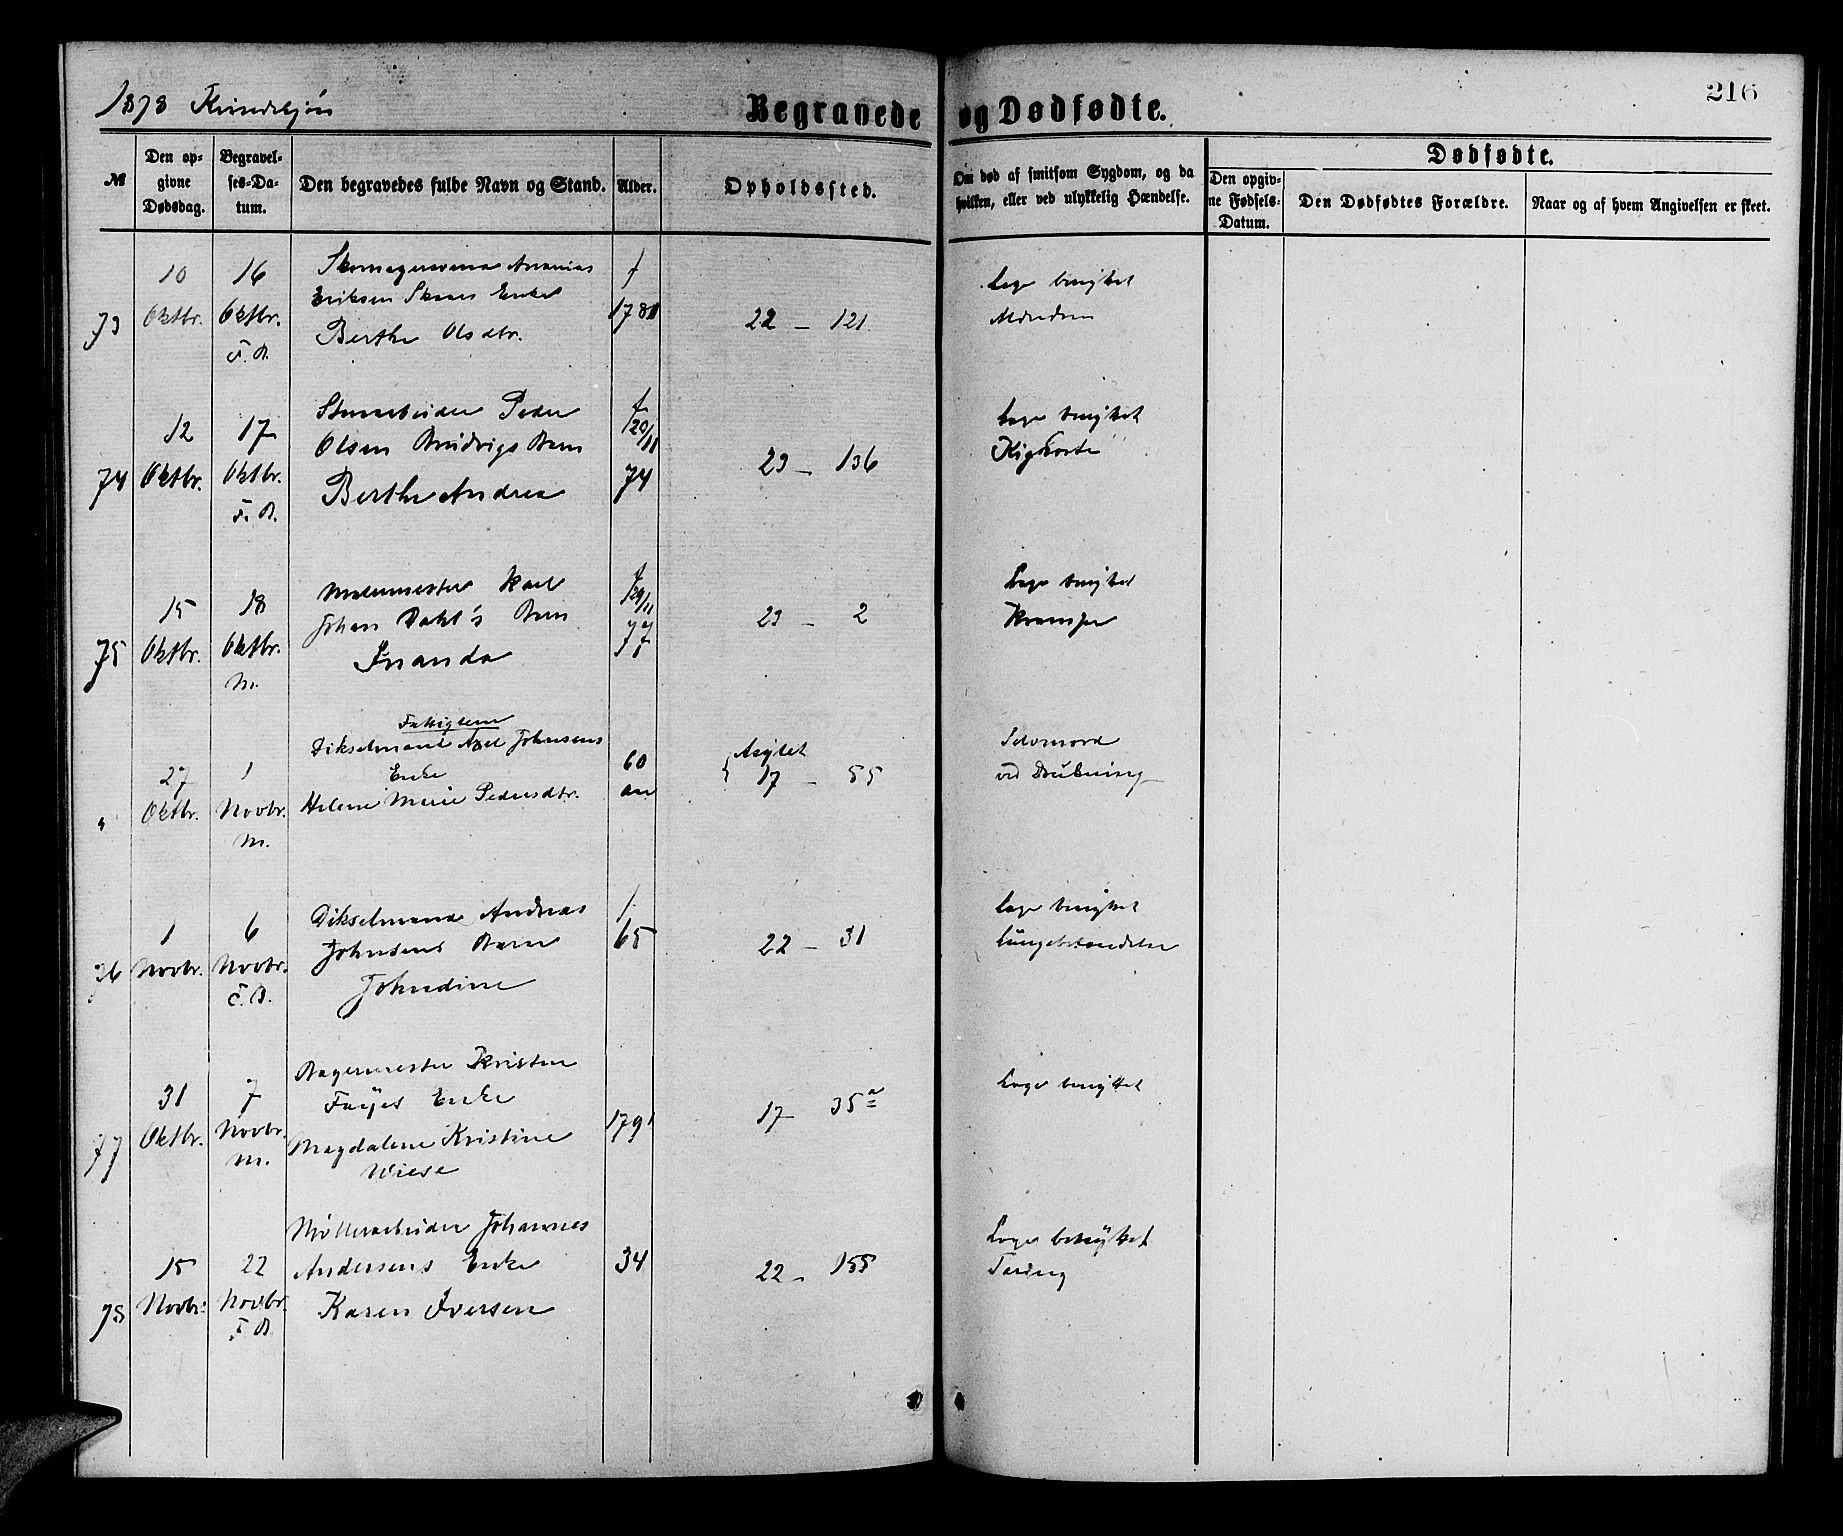 1878 Kvindekjön
Begravede og Dødfødte.
216
№
Den opgivne Dødsdag.
Begravelses-Datum.
Den begravedes fulde Navn og Stand.
Alder.
Opholdssted.
Om død af smitsom Sygdom, og da
hvilken, eller ved ulykkelig Hændelse.
Dødfødte.
Den opgivne Fødsels-Datum.
Den Dødfødtes Forældre.
Naar og af hvem Angivelsen er skeet.
73
10
Oktbr.
16
Oktbr.
F. A.
Ananias
Eriksen Enke
Berthe Olsdtr.
f
22 – 121
Læge benyttet
74
12
Oktbr.
17
Oktbr.
F. A.
Peder
Olsen Barn
Berthe Andrea
f
20/11
74
23 – 136
Læge benyttet
Kighoste
75
15
Oktbr.
18
Oktbr.
M.
Malermester Karl
Johan Dahl's Barn
Inanda
f
29/11
77
23 – 2
Læge benyttet
Krampe
"
27
Oktbr.
1
Novbr.
M.
Fattiglem
Dikselmand Axel Johnsens
Enke
Helene Marie Pedersdtr.
60
Aar
Asylet
17 – 55
Selvmord
ved Drukning
76
1
Novbr.
6
Novbr.
F. A.
Dikselmand Andreas
Johnsens Barn
Johndine
f.
65
22 – 31
Læge benyttet
Lungebetændelse
77
31
Oktbr.
7
Novbr.
M.
Bagermester Kristen
Fayes Enke
Magdalene Kristine
Wiese
1791
17 – 35a
Læge benyttet
78
15
Novbr.
22
Novbr.
F. A.
Møllearbeider Johannes
Andersens Enke
Karen Iversen
34
22 – 155
Læge benyttet
Tæring